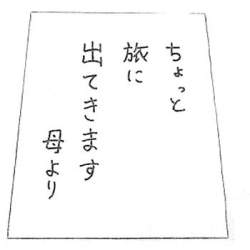 ちょっと
旅に
出てきます
母より